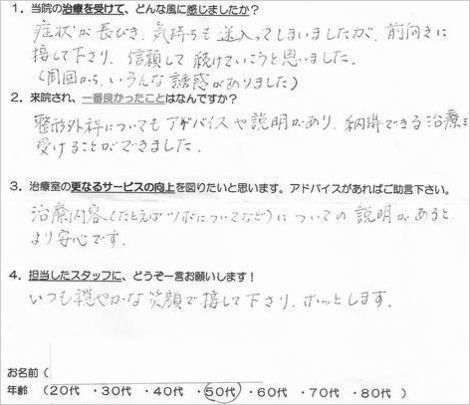 1．当院の治療を受けて、どんな風に感じましたか？
症状が長びき、気持ちも迷入ってしまいましたが、前向きに
接して下さり、信頼して続けていこうと思いました。
（周囲から、いろんな誘惑がありました）
2．来院され、一番良かったことはなんですか？
整形外科についてもアドバイスや説明があり、納得できる治療を
受けることができました。
3．治療室の更なるサービスの向上を図りたいと思います。アドバイスがあればご助言下さい。
治療内容（たとえばツボについてなど）についての説明があると
より安心です。
4．担当したスタッフに、どうぞ一言お願いします！
いつも穏やかな笑顔で接して下さり、ホッとします。
お名前（
年齢（20代・30代・40代・50代・60代・70代・80代）